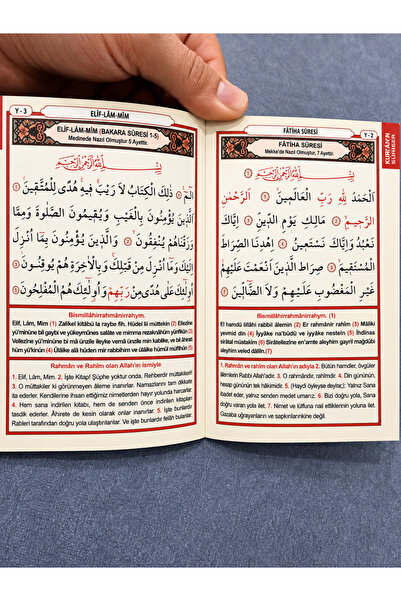 Y - 2
FÂTİHA SÛRESİ
KUR'ÂN'IN SÛRELERİ
FÂTİHA SÛRESİ
Mekke'de Nazil Olmuştur, 7 Ayettir.
بِسْمِ اللّٰهِ الرَّحْمٰنِ الرَّحِيمِ ①
اَلْحَمْدُ لِلّٰهِ رَبِّ الْعَالَمِينَۙ ② اَلرَّحْمٰنِ
الرَّحِيمِۙ ③ مَالِكِ يَوْمِ الدِّينِۜ ④ اِيَّاكَ
نَعْبُدُ وَاِيَّاكَ نَسْتَعِينُۜ ⑤ اِهْدِنَا الصِّرَاطَ
الْمُسْتَقِيمَۙ ⑥ صِرَاطَ الَّذِينَ اَنْعَمْتَ عَلَيْهِمْ
غَيْرِ الْمَغْضُوبِ عَلَيْهِمْ وَلَا الضَّٓالِّينَ ⑦
Bismillâhirrahmânirrahym. (1)
El hamdü lillâhi rabbil âlemin (2) Er rahmânir rahîm (3) Mâliki
yevmid din (4) İyyâke na'büdü ve iyyâke nesteîn (5) İhdinas
sirâtal müstakîm (6) Sirâtellezîne en'amte aleyhim gayril mağdûbi
aleyhim veled dâllîn.(7)
1. Rahmân ve Rahîm olan Allah'ın adıyla 2. Bütün hamdler, övgüler
âlemlerin Rabbi Allah'adır. 3. O rahmândır, rahîmdir. 4. Din gününün,
hesap gününün tek hâkimidir. 5. (Haydi öyleyse deyiniz.): Yalnız Sana
ibadet eder, yalnız senden medet umarız. 6. Bizi doğru yola, Sana
doğru varan yola ilet. 7. Nimet ve lütfuna nail ettiklerinin yoluna ilet.
Gazaba uğrayanların ve sapkınlarınkine değil.
Y - 3
ELİF-LÂM-MÎM
ELİF-LÂM-MÎM (BAKARA SÛRESİ 1-5)
Medinede Nazil Olmuştur, 5 Ayettir.
بِسْمِ اللّٰهِ الرَّحْمٰنِ الرَّحِيمِ
الٓمٓ ① ذٰلِكَ الْكِتَابُ لَا رَيْبَ فِيهِ هُدًى لِلْمُتَّقِينَ ②
اَلَّذِينَ يُؤْمِنُونَ بِالْغَيْبِ وَيُقِيمُونَ الصَّلٰوةَ وَمِمَّا
رَزَقْنَاهُمْ يُنْفِقُونَ ③ وَالَّذِينَ يُؤْمِنُونَ بِمَٓا اُنْزِلَ
اِلَيْكَ وَمَٓا اُنْزِلَ مِنْ قَبْلِكَ وَبِالْاٰخِرَةِ هُمْ يُوقِنُونَ ④
اُولٰٓئِكَ عَلٰى هُدًى مِنْ رَبِّهِمْ وَاُولٰٓئِكَ هُمُ الْمُفْلِحُونَ ⑤
Bismillâhirrahmânirrahym.
Elif, Lâm, Mîm (1) Zalikel kitâbü la raybe fih. Hüdel lil müttekîn (2) Ellezîne
yü'minûne bil gaybi ve yükeymûnes salâte ve mimma rezaknâhüm yünfikûn (3)
Vellezîne yü'minûne bi mâ ünzile ileyke vemâ ünzile min kablike, ve bil âhirati
hüm yûkinûn (4) Ülâike alâ hüdem mir rabbihim ve ülâike hümül müflihûn (5)
Rahmân ve Rahîm olan Allah'ın ismiyle
1. Elif, Lâm, Mîm. 2. İşte Kitap! Şüphe yoktur onda. Rehberdir müttakilere!
3. O müttakiler ki görünmeyen âleme inanırlar. Namazlarını tam dikkatle
ita ederler. Kendilerine ihsan ettiğimiz nimetlerden hayır yolunda harcarlar.
4. Hem sana indirilen kitabı, hem de senden önce indirilen kitapları
tasdik ederler. Âhirete de kesin olarak onlar inanırlar. 5. İşte bunlardır
Rableri tarafından doğru yola ulaştırılanlar. Ve işte bunlardır felâh bulanlar.